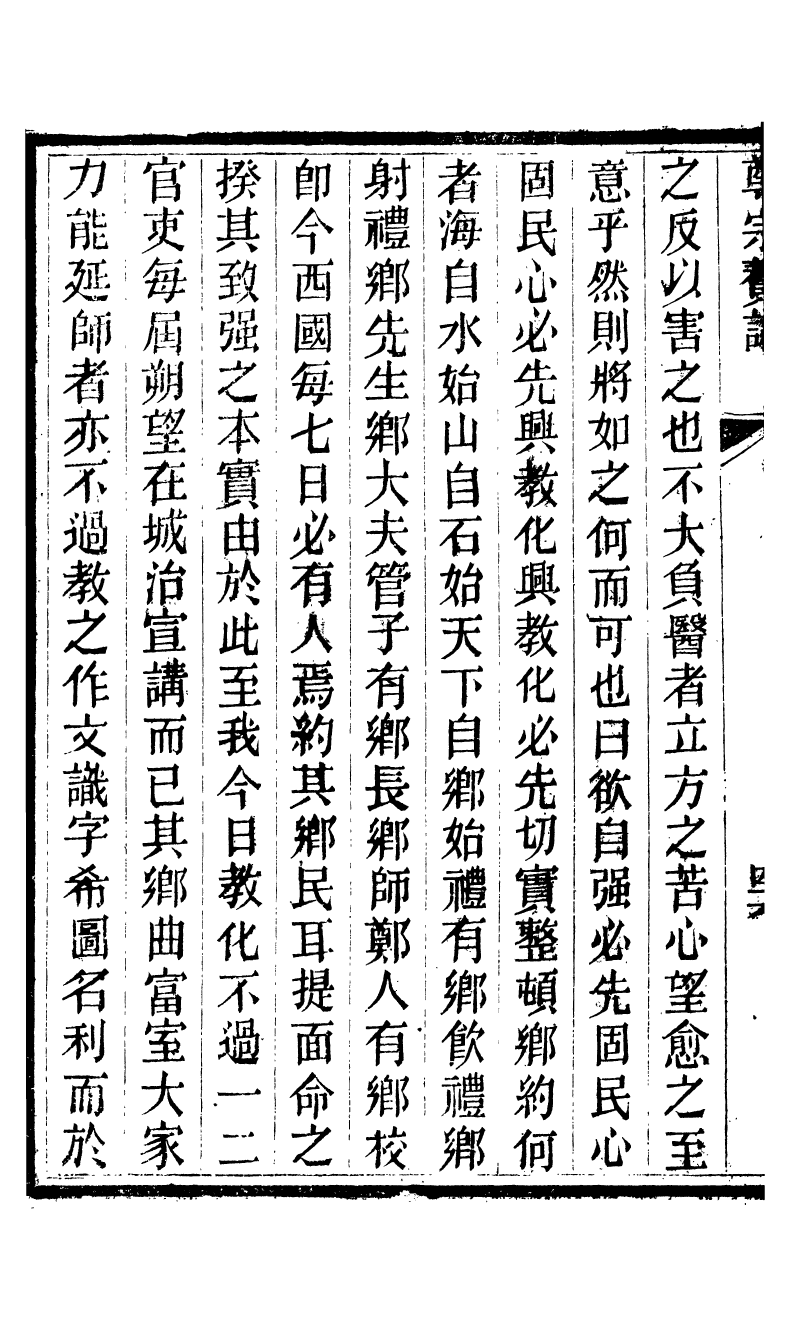 之反以害之也不大負醫者立方之苦心望愈之至
意乎然則將如之何而可也曰欲自强必先固民心
固民心必先興教化興教化必先切實整頓鄉約何
者海自水始山自石始天下自鄉始禮有鄉飲禮鄉
射禮鄉先生鄉大夫管子有鄉長鄉師鄭人有鄉校
卽今西國每七日必有人焉約其鄉民耳提面命之
揆其致强之本實由於此至我今日教化不過一二
官吏每屆朔望在城治宣講而已其鄉曲富室大家
力能延師者亦不過教之作文識字希圖名利而於